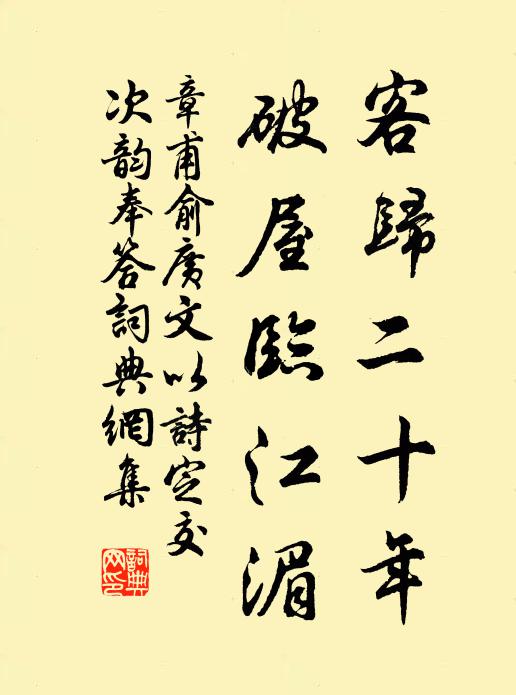 客歸二十年
破屋臨江湄
章甫俞廣文以詩定交
次韵奉答詞典網集
詞典網印